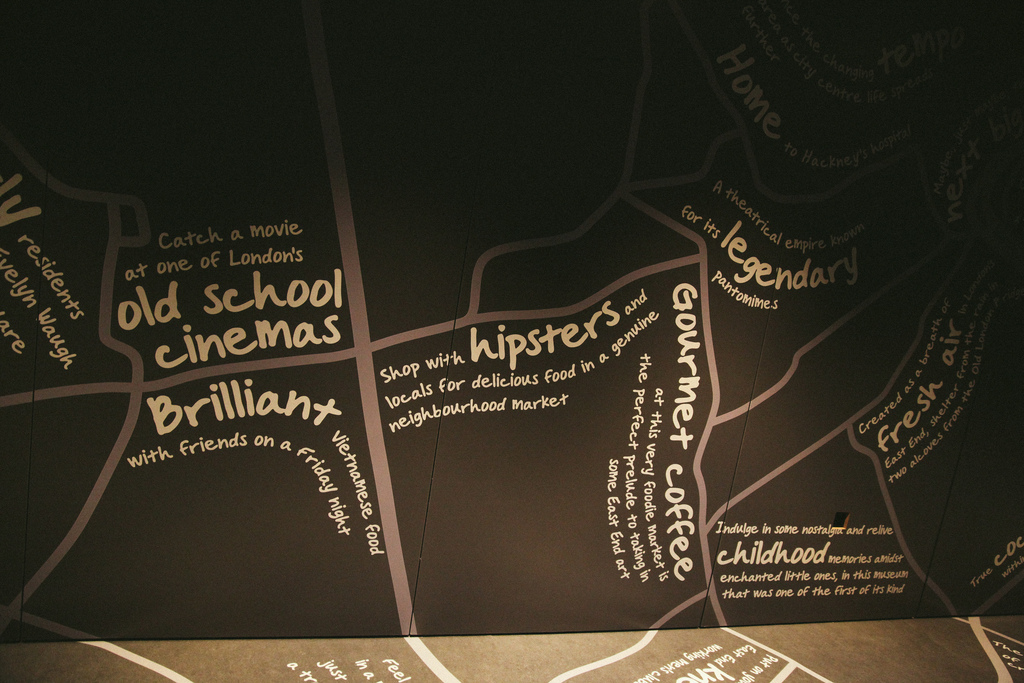 residents
Evelyn Waugh
Catch a movie
at one of London's
old school
cinemas
Brilliant
Vietnamese food
with friends on a Friday night
Shop with hipsters and
locals for delicious food in a genuine
neighbourhood market
Gourmet coffee
at this very foodie market is
the perfect prelude to taking in
some East End art
the changing tempo
area as city centre life spreads
further
Home to Hackney's hospital
next big
A theatrical empire known
for its legendary
pantomimes
Created as a breath of
fresh air in London's
East End, shelter from the rain in
two alcoves from the Old London
Indulge in some nostalgia and relive
childhood memories amidst
enchanted little ones, in this museum
that was one of the first of its kind
True
Feel
in a
just
a
Put on your
East End
working men's